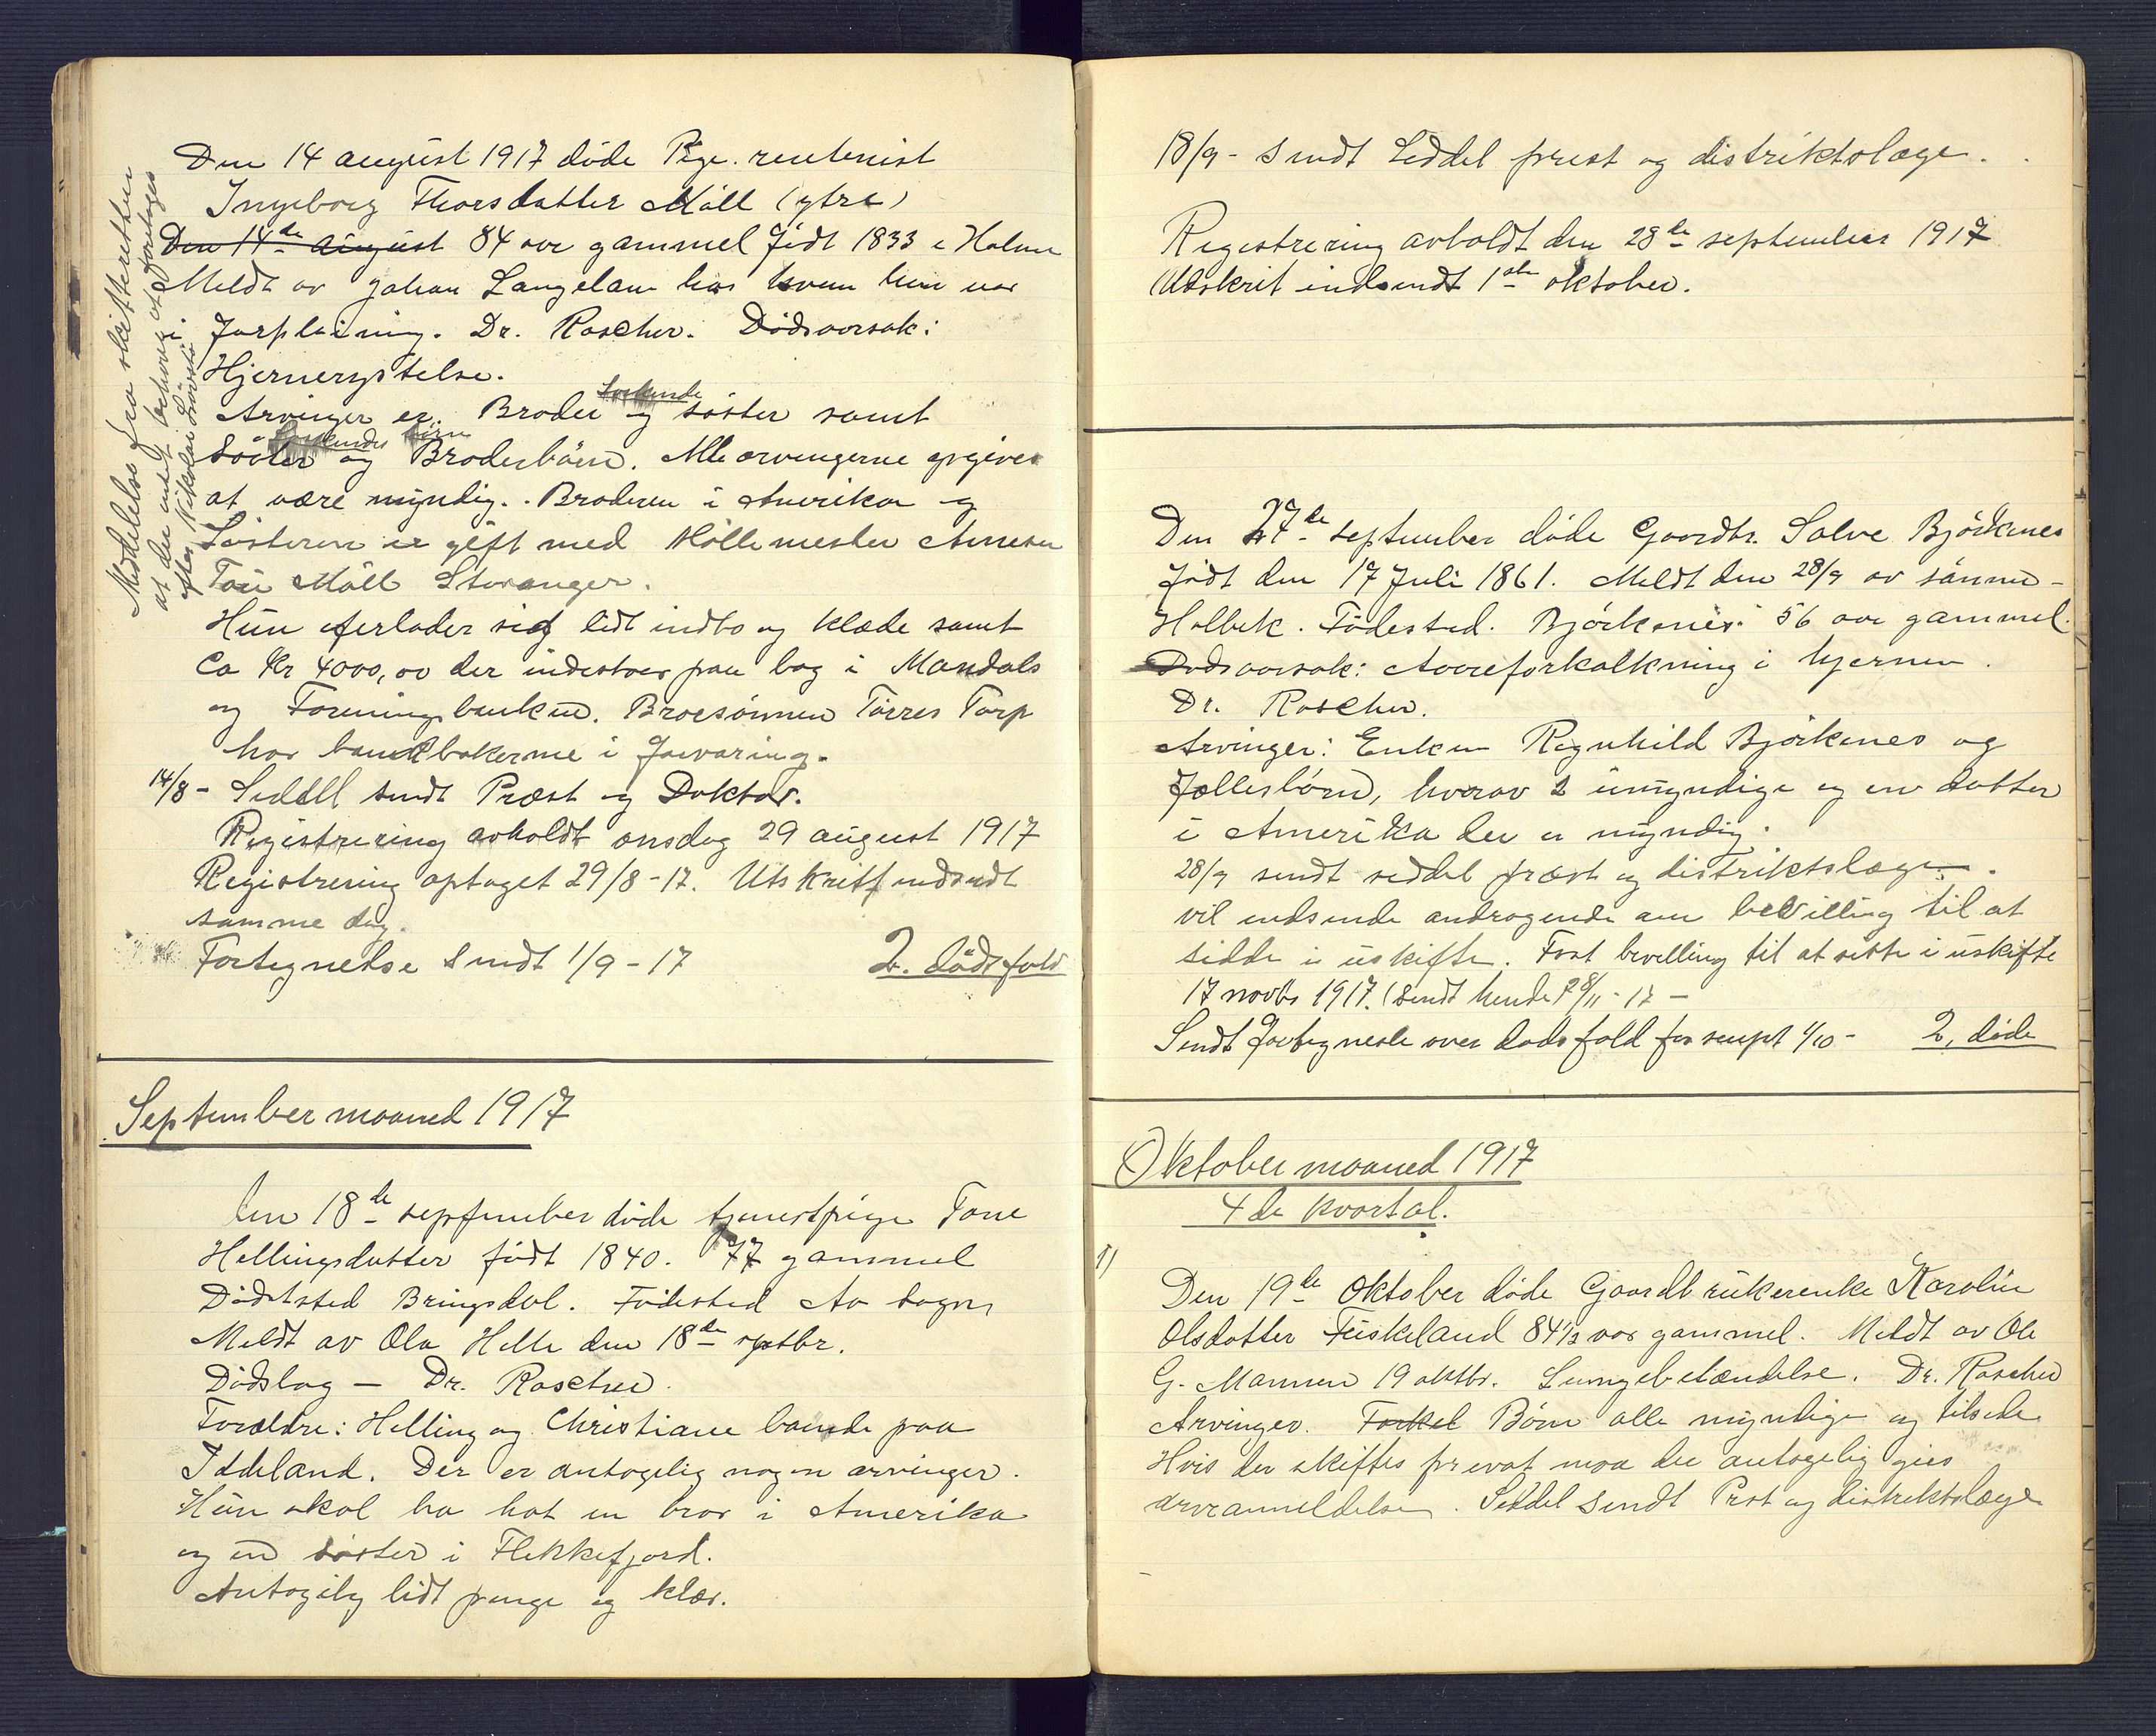 Den 14 august 1917 døde Pige. rentenist
Ingeborg Thorsdatter Møll (ytre)
Den 14de august 84 aar gammel født 1833 i Holme
Meldt av Johan Langeland hos hvem hun var
i forpleining. Dr. Roscher. Dødsaarsak:
Hjernerystelse.
Søskende
Arvinger er. Broder og søster samt
Søskendes børn
Søster og Broderbørn. Alle arvingerne opgives
at være myndig. Broderen i Amerika og
Søsteren er gift med Møllemester
Tou Møll Stavanger.
Hun efterlader sig lidt indbo og klæde samt
Ca Kr 4000,00 der indestaar paa bog i Mandals
og Foreningsbanken. Brorsønnen Tørres Torp
har bankbøkerne i forvaring.
14/8 - Seddel sendt Præst og Doktor.
Registrering avholdt onsdag 29 august 1917
Registrering optaget 29/8-17. Utskrift indsendt
samme dag.
Fortegnelse sendt 1/9-17 2. dødsfald
Meddelelse fra skifteretten
at der intet behøves at foretages
efter Nikolai
September maaned 1917
Den 18de september døde tjenestpige Tone
Hellingsdatter født 1840. 77 gammel
Dødssted Bringsdal. Fødested Aa sogn
Meldt av Ola Helle den 18de septbr.
Dødslag - Dr. Roscher.
Forældre: Helling og Christiane bænde paa
Iddeland. Der er antagelig nogen arvinger.
Hun skal ha hat en bror i Amerika
og en søster i Flekkefjord.
Antagelig lidt penge og klær.
18/9 - sendt Seddel prest og distriktslæge.
Registrering avholdt den 28de september 1917
Utskrit indsendt 1ste oktober.
Den 27de september døde Gaardbr. Salve Bjørkenes
født den 17 Juli 1861. Meldt den 28/9 av sønnen
Holbek. Fødested. Bjørkenes. 56 aar gammel.
Dødsaarsak: Aareforkalkning i hjernen.
Dr. Roscher.
Arvinger: Enken Regnhild Bjørkenes og
fællesbørn, hvorav 2 umyndige og en datter
i Amerika der er myndig.
28/9 sendt seddel præst og distriktslæge.
vil indsende andragende om bevilling til at
sidde i uskifte. Faat bevilling til at sitte i uskifte
17 novbr 1917. (sendt hende 28/11-17 -
Sendt Fortegnesle over dødsfald for sept 1/10 - 2, døde
Oktober maaned 1917
4de kvartal.
1)
Den 19de Oktober døde Gaardbrukerenke Karolin
Olsdatter Fuskeland 84 1/2 aar gammel. Meldt av Ole
G. Mannen 19 oktbr. Lungebetændelse. Dr. Roscher
Arvinger. Forkel Børn alle myndige og tilstede
Hvis der skiftes privat maa der antagelig gies
arveanmeldelse. Seddel sendt Prst og distriktslæge